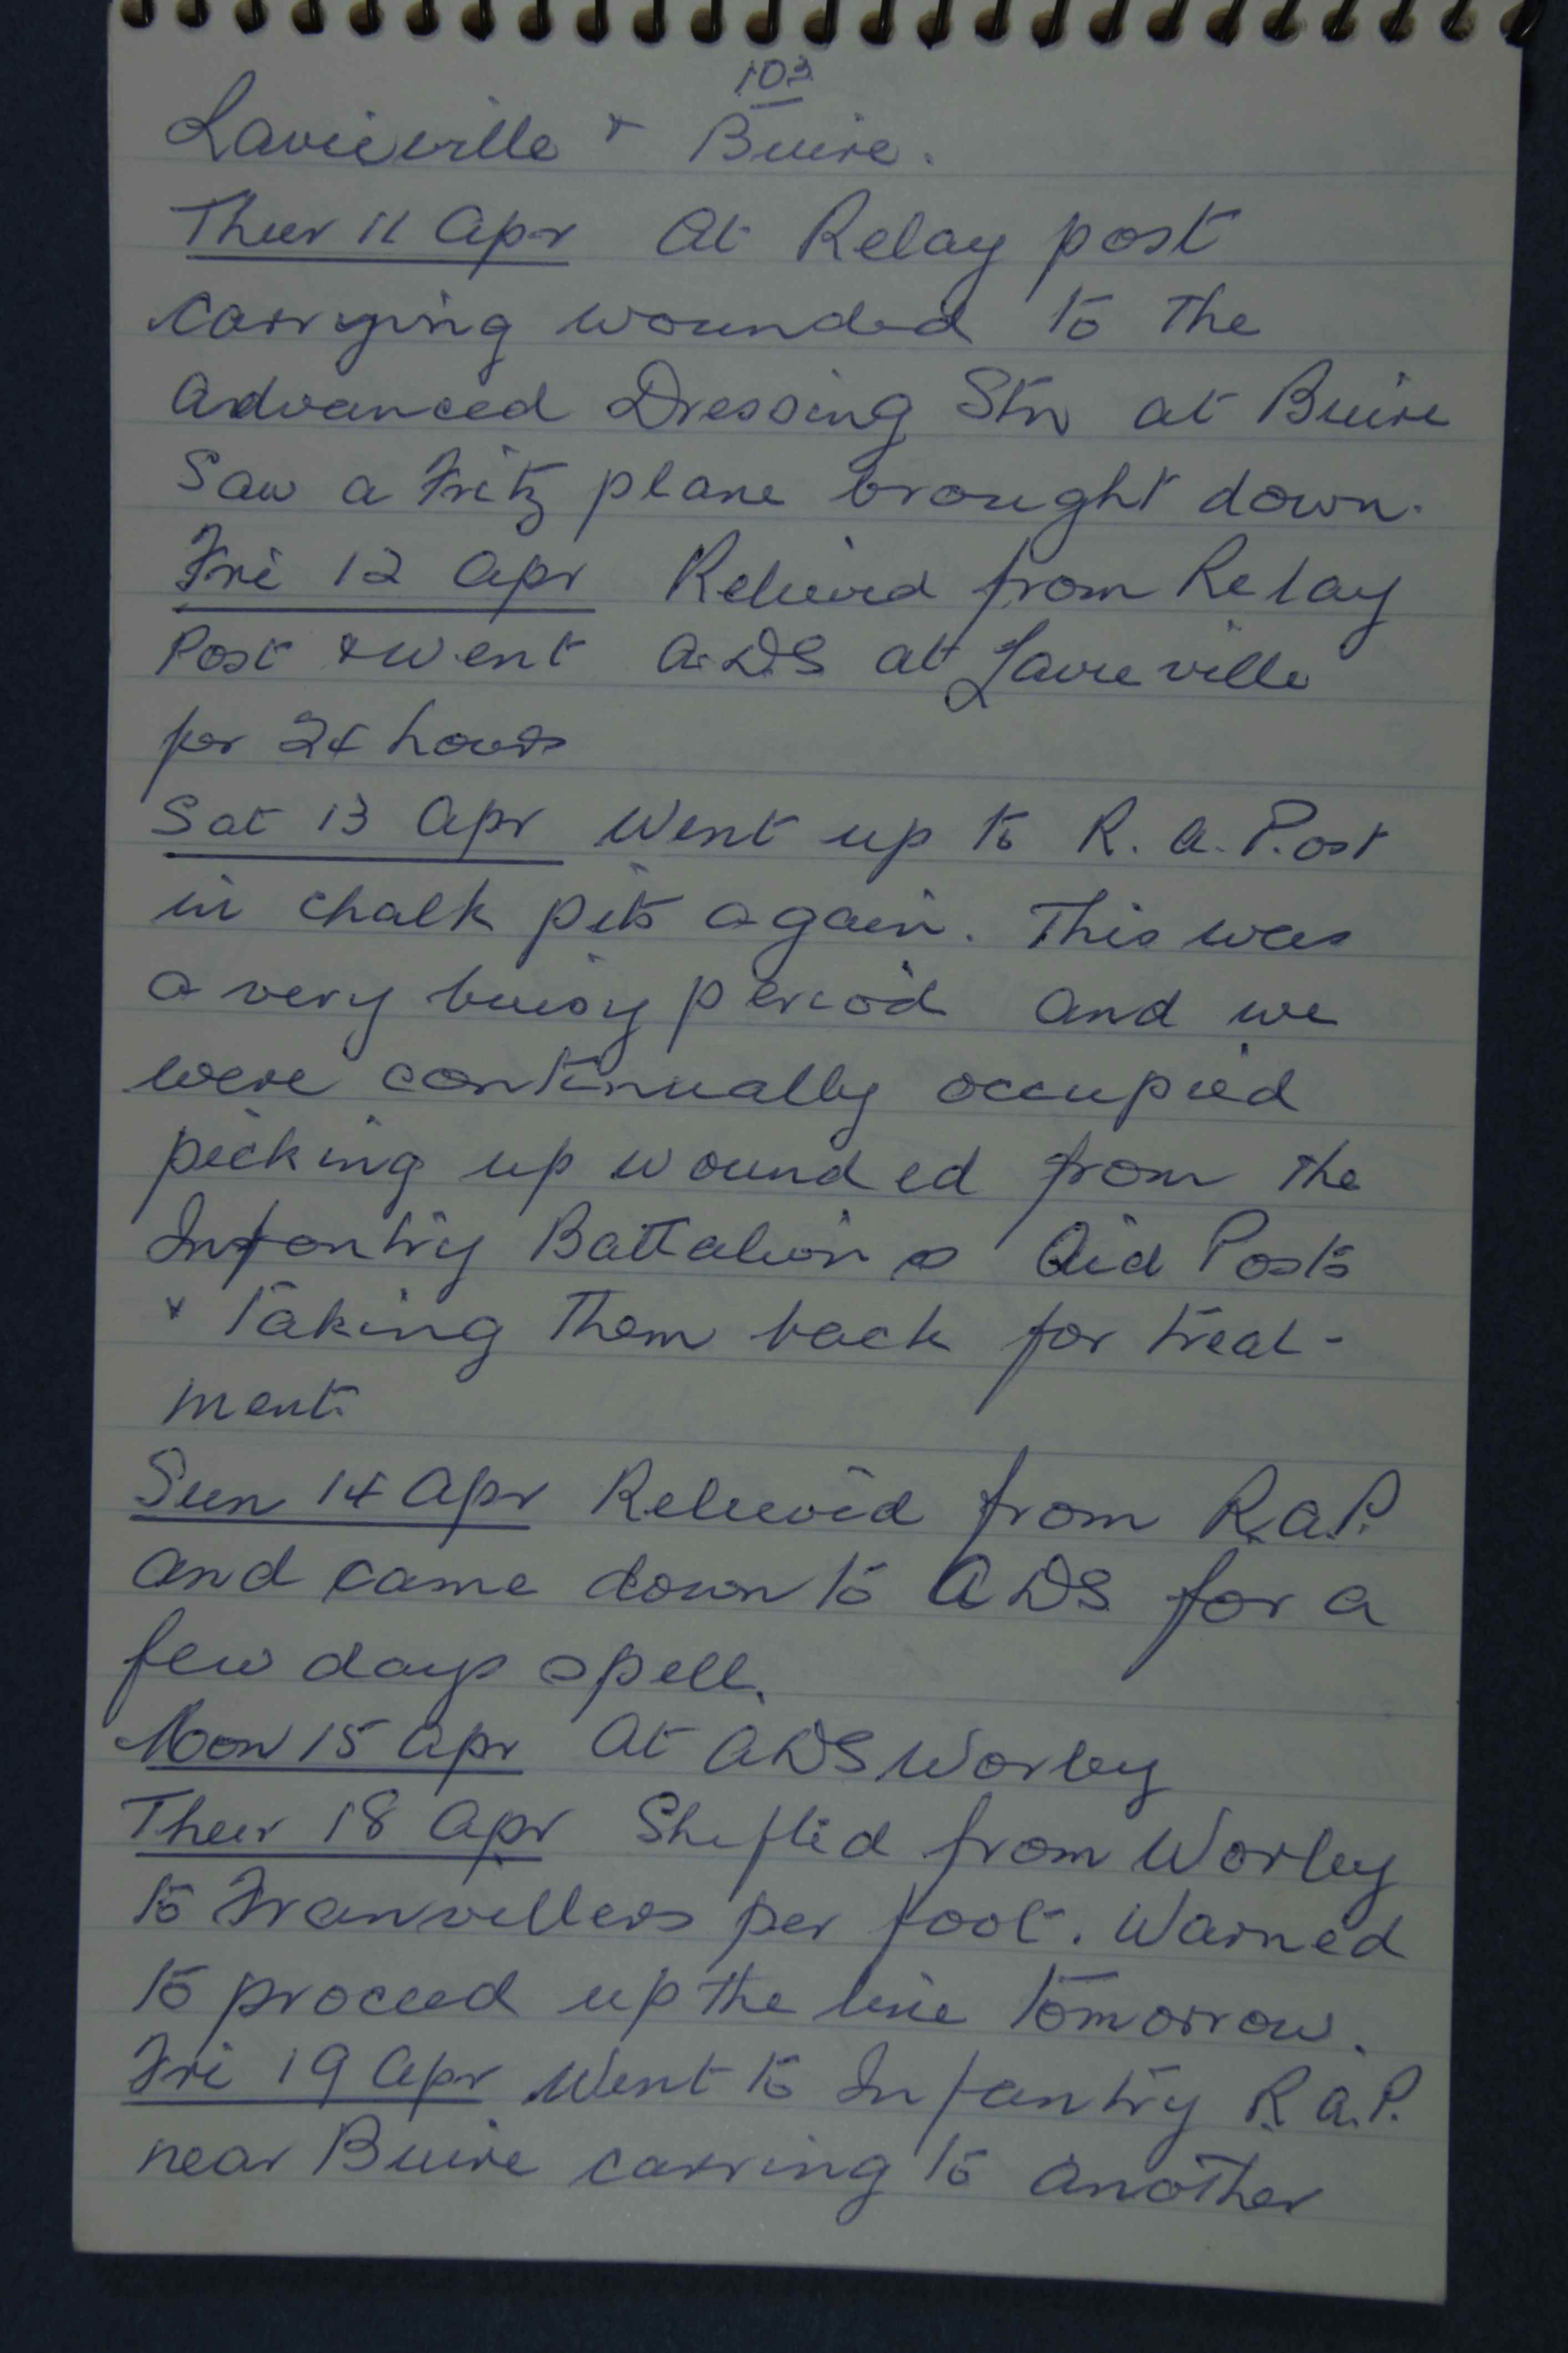 103
Lavieville & Buire.
Thur 11 Apr At Relay post
carrying wounded to the
Advanced Dressing Stn at Buire
Saw a Fritz plane brought down.
Fri 12 Apr Relieved from Relay
Post & went A.D.S at Lavieville
for 24 hours
Sat 13 Apr Went up to R. A. Post
in chalk pits again. This was
a very buisy period and we
were continually occupied
picking up wounded from the
Infantry Battalions Aid Posts
& taking them back for treat-
ment.
Sun 14 Apr Relieved from R.A.P.
and came down to ADS for a
few days spell.
Mon 15 Apr At ADS Worley
Thur 18 Apr Shifted from Worley
to Franvillers per foot. Warned
to proceed up the line tomorrow.
Fri 19 Apr Went to Infantry R.A.P.
near Buire carring to another